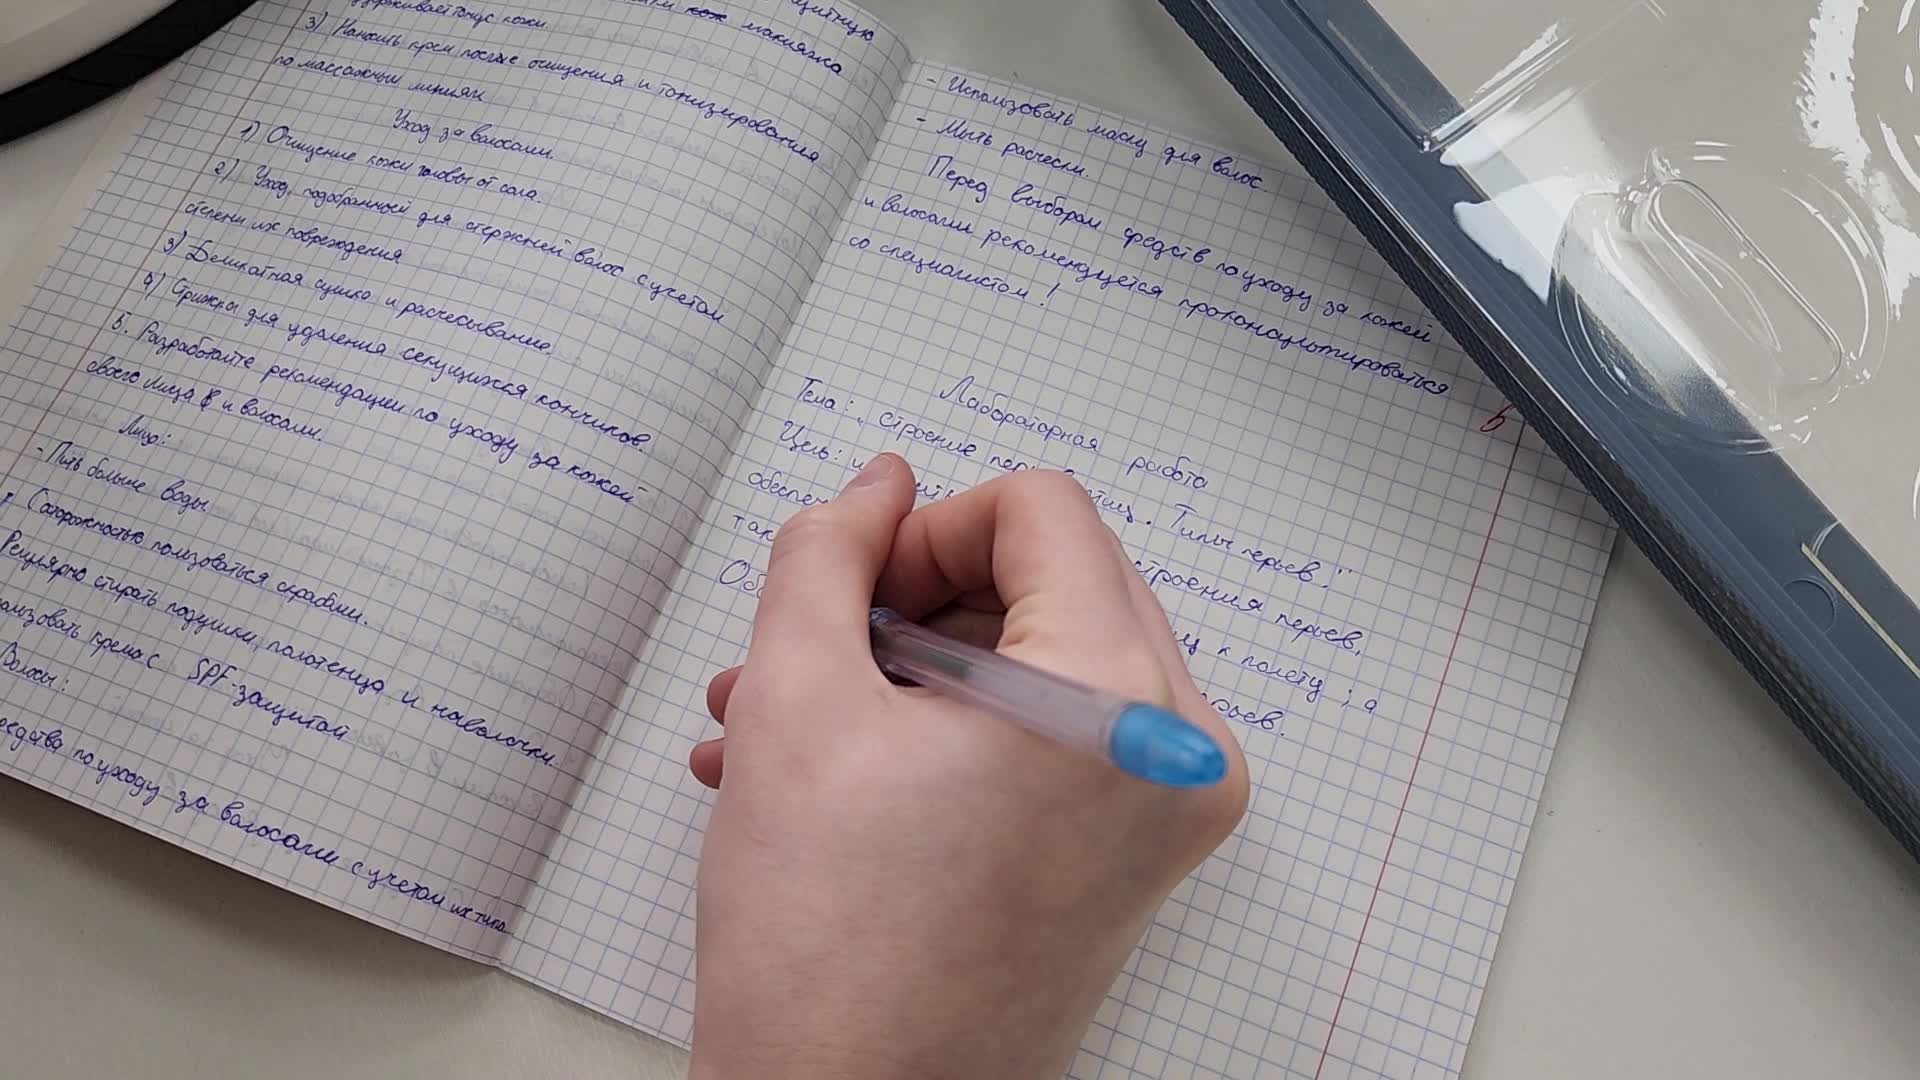 кож макияжа
3) Наносить крем после очищения и тонизирования
по массажным линиям
Уход за волосами.
1) Очищение кожи головы от сала.
2) Уход, подобранный для стержней волос с учетом
степени их повреждения
3) Деликатная сушка и расчесывание.
4) Стрижка для удаления секущихся кончиков.
5. Разработайте рекомендации по уходу за кожей
своего лица и волосами.
Лицо:
- Пить больше воды
С осторожностью пользоваться скрабами.
Регулярно стирать подушки, полотенца и наволочки.
крема с SPF-защитой
Волосы:
по уходу за волосами с учетом их типа
- Использовать маску для волос
- Мыть расчески.
Перед выбором средств по уходу за кожей
и волосами рекомендуется проконсультироваться
со специалистом!
5
Лабораторная работа
Тема: „строение птиц. Типы перьев."
Цель: строения перьев,
к полёту; а